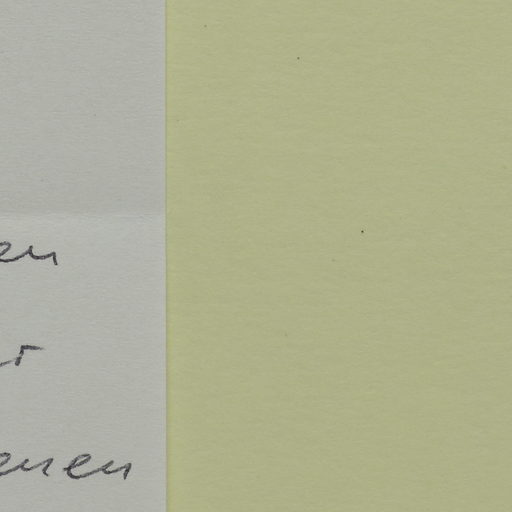 en
r
enen